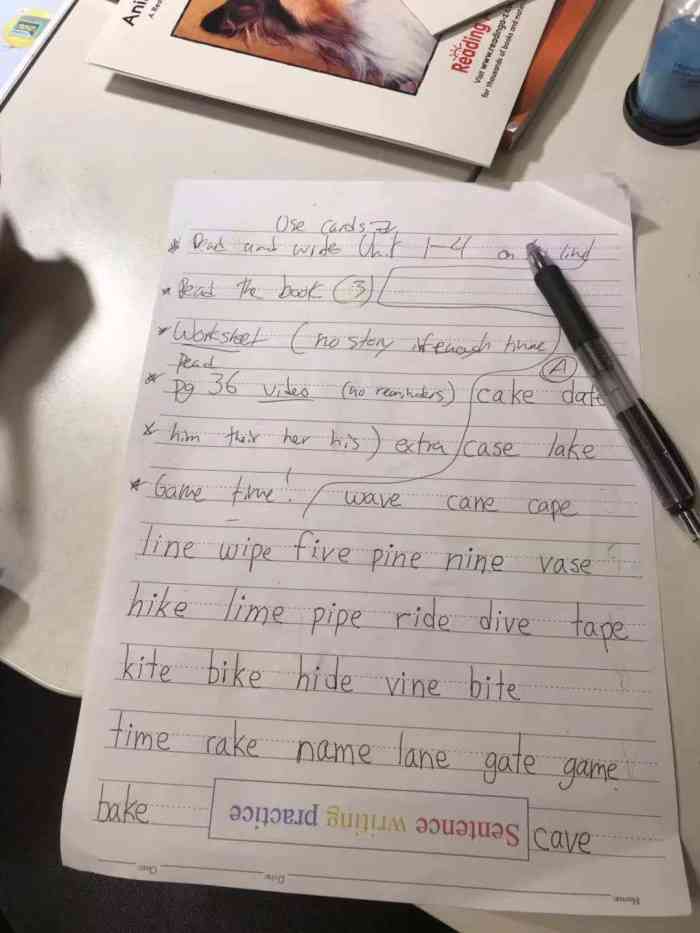 Ani
A Rea
Reading
Visit www.readinga-z.c
for thousands of books and mo
Use cards
* Read and write Unit 1-4 on the line
* Read the book (3)
* Worksheet (no story if enough time)
Read
* pg 36 video (no reminders)
A
cake date
* him their her his) extra
case lake
* Game time!
wave cane cape
line wipe five pine nine vase
hike lime pipe ride dive tape
kite bike hide vine bite
time rake name lane gate game
bake
cave
Sentence writing practice
Name:
Date:
Class: